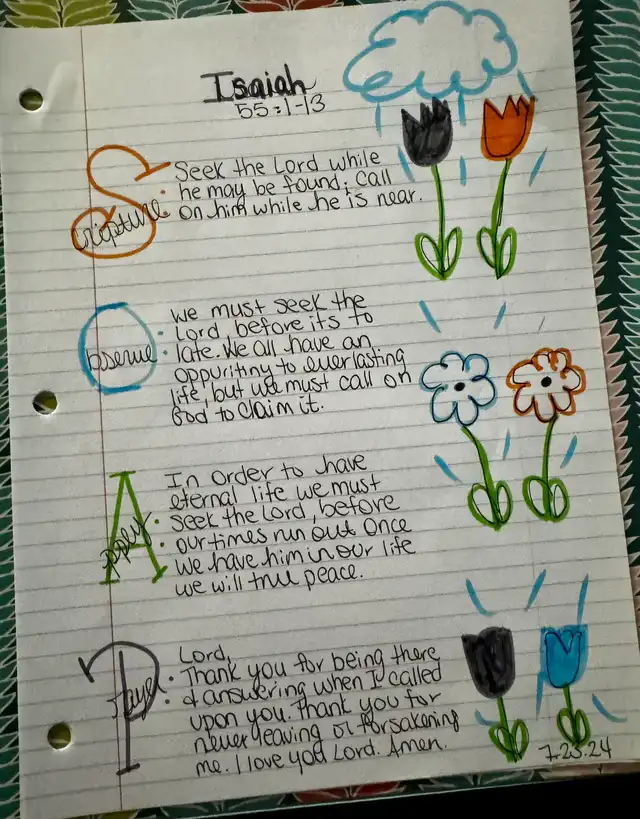 Isaiah
55:1-13
Scripture
Seek the Lord while
he may be found; call
on him while he is near.
Observe
we must seek the
Lord before its to
late. We all have an
oppuritiny to everlasting
life, but we must call on
God to claim it.
Apply
In order to have
eternal life we must
seek the Lord, before
our times run out. Once
we have him in our life
we will true peace.
Prayer
Lord,
Thank you for being there
& answering when I called
upon you. Thank you for
never leaving or forsakening
me. I love you Lord. Amen.
7.23.24